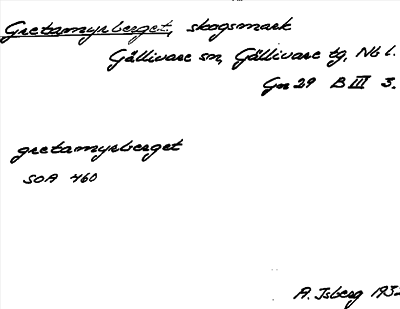 Gretamyrberget, skogsmark
Gällivare sn, Gällivare tg, Nb l.
Gn 29 B III 3.
gretamyrberget
SOA 460
A. Isberg 1932